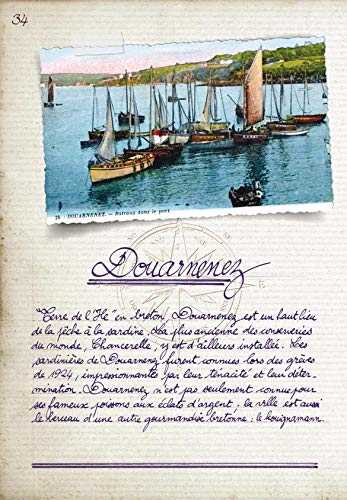 34
28 DOUARNENEZ. - Bateaux dans le port
Douarnenez
"Terre de l'Ile" en breton, Douarnenez est un haut lieu
de la pêche à la sardine. La plus ancienne des conserveries
du monde, Chancerelle, y est d'ailleurs installée. Les
sardinières de Douarnenez furent connues lors des grèves
de 1924, impressionnantes par leur ténacité et leur déter-
mination. Douarnenez n'est pas seulement connue pour
ses fameux poissons aux éclats d'argent : la ville est aussi
le berceau d'une autre gourmandise bretonne : le kouignamann.